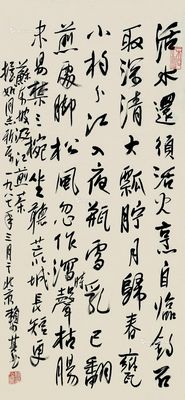 活水還須活火烹自臨釣石
取深清大瓢貯月歸春甕
小杓分江入夜瓶雪乳已翻
煎處腳松風忽作瀉時聲枯腸
未易禁三椀坐聽荒城長短更
蘇東坡汲江煎茶
一九八七年三月于北京